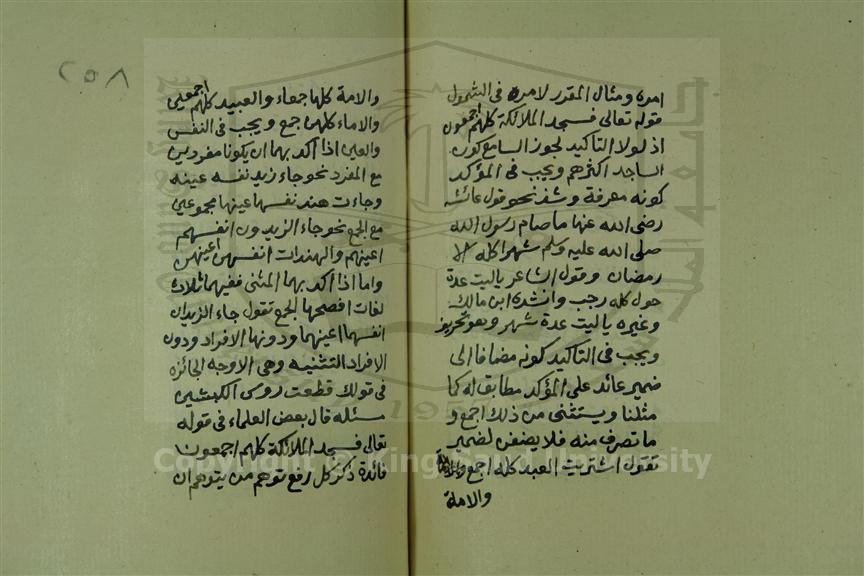 امره ومثال المقدر لامره في الشمول
قوله تعالى فسجد الملائكة كلهم اجمعون
اذ لولا التاكيد لجوز السامع كون
الساجد اكثرهم ويجب في المؤكد
كونه معرفة وشذ نحو قول عائشه
رضى الله عنها ما صام رسول الله
صلى الله عليه وسلم شهرا كله الا
رمضان وقول الشاعر ياليت عدة
حول كله رجب وانشده ابن مالك
وغيره ياليت عدة شهر وهو تحريف
ويجب في التاكيد كونه مضافا الى
ضمير عائد على المؤكد مطابق له كما
مثلنا ويستثنى من ذلك اجمع و
ما تصرف منه فلا يضفن لضمير
تقول اشتريت العبد كله اجمع
والامة
٢٥٨
والامة كلها جمعاء والعبيد كلهم اجمعين
والاماء كلهن جمع ويجب في النفس
والعين اذا اكد بهما ان يكونا مفردين
مع المفرد نحو جاء زيد نفسه عينه
وجاءت هند نفسها عينها مجموعين
مع الجمع نحو جاء الزيدون انفسهم
اعينهم والهندات انفسهن اعينهن
واما اذا اكد بهما المثنى ففيهما ثلاث
لغات افصحها الجمع تقول جاء الزيدان
انفسهما اعينهما ودونها الافراد ودون
الافراد التثنيه وهي الاوجه الجائزه
في قولك قطعت روس الكبشين
مسئله قال بعض العلماء في قوله
تعالى فسجد الملائكة كلهم اجمعون
فائدة ذكر كل رفع توهم من يتوهم ان
1957
Copyright © King Saud University